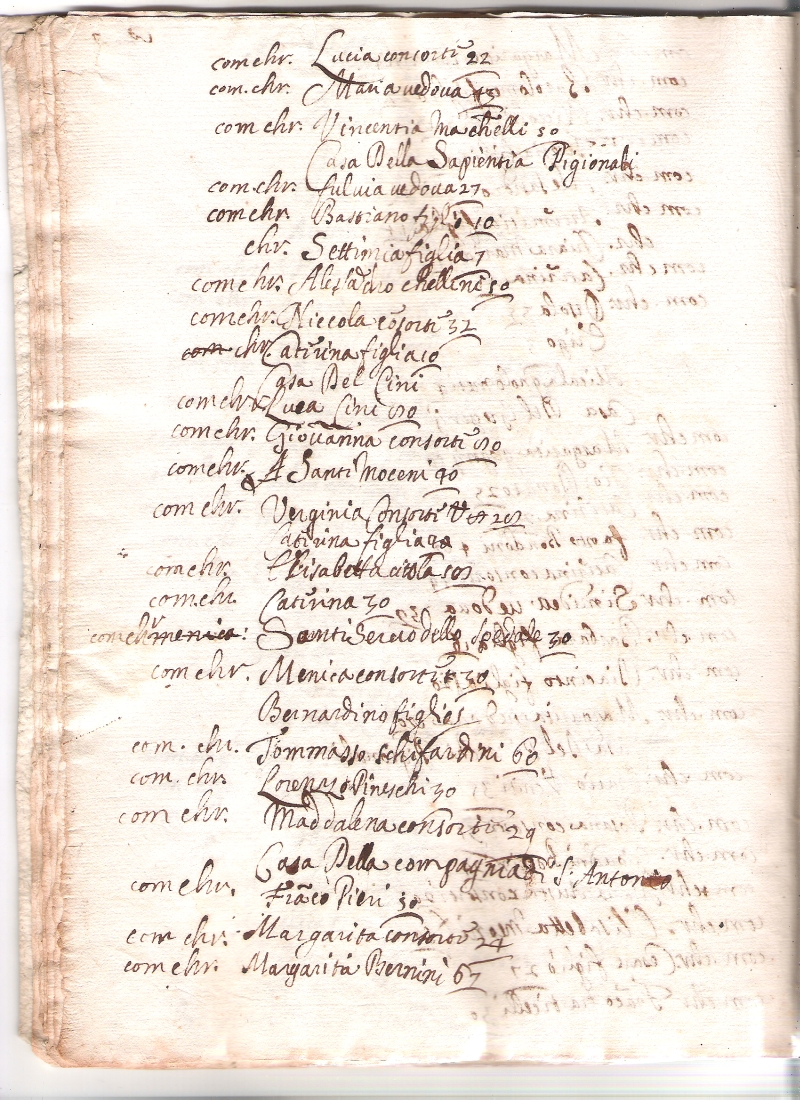 com chr. Lucia consorte 22
com. chr. Maria vedova
com chr. Vincentia Machelli 50
Casa Della Sapientia Pigionali
com chr. fulvia vedova 27
com chr. Bastiano figlio 10
chr. Settimia figlia 7
com chr. Chellini 50
com chr. Niccola cosorte 32
chr. Caterina figlia 10
Casa Del Cini
com chr. Luca Cini
com chr. Giovanna consorte
com chr. Santi Moceni 40
com chr. Verginia Consorte
Caterina figlia
com chr. Elisabetta
com chr. Caterina 30
com chr. Santi Servo dello spedale 30
com chr. Menica consorte 30
Bernardino figlio
com. chr. Tommasso 60
com. chr. Lorenzo Pineschi 30
com chr. Maddalena consorte 29
Casa Della compagnia di S. Antonio
com chr. Fraco Pieri 30
com chr. Margarita consorte 24
com chr. Margarita Bernini 67